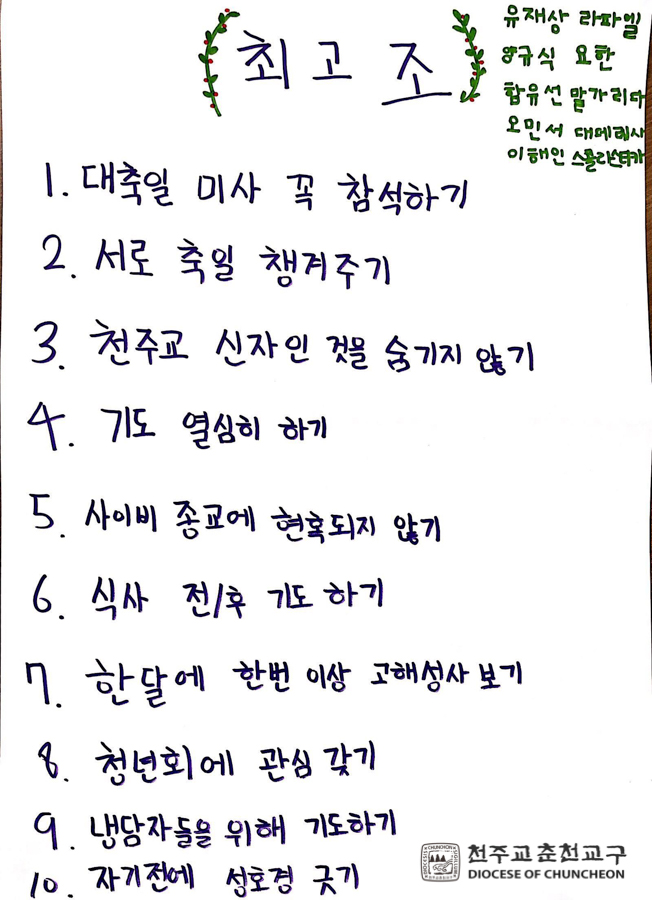 최고조
유재상 라파엘
양규식 요한
함유선 말가리다
오민서 대데레사
이해인 스콜라스티카
1. 대축일 미사 꼭 참석하기
2. 서로 축일 챙겨주기
3. 천주교 신자인 것을 숨기지 않기
4. 기도 열심히 하기
5. 사이비 종교에 현혹되지 않기
6. 식사 전/후 기도 하기
7. 한달에 한번 이상 고해성사 보기
8. 청년회에 관심 갖기
9. 냉담자들을 위해 기도하기
10. 자기전에 성호경 긋기
천주교 춘천교구
DIOCESE OF CHUNCHEON